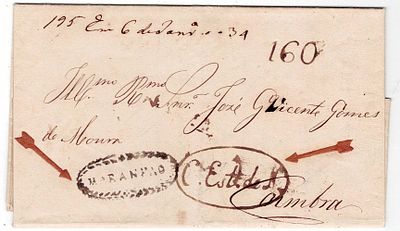 195 Em 6 de Janro 34
160
Illmo Rmo Snr. José Vicente Gomes
de Moura
MARANHAO
Coimbra